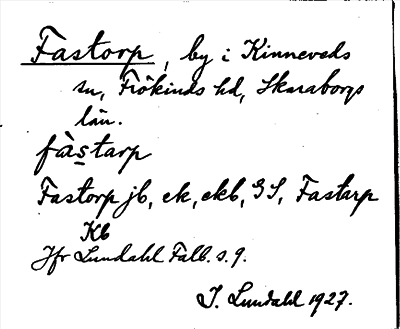 Fastorp, by i Kinneveds
sn, Frökinds hd, Skaraborgs
län.
fàstarp
Fastorp jb, ek, ekb, GS, Fastarp
Kb
Jfr Lundahl Falb. s. 9.
I. Lundahl 1927.